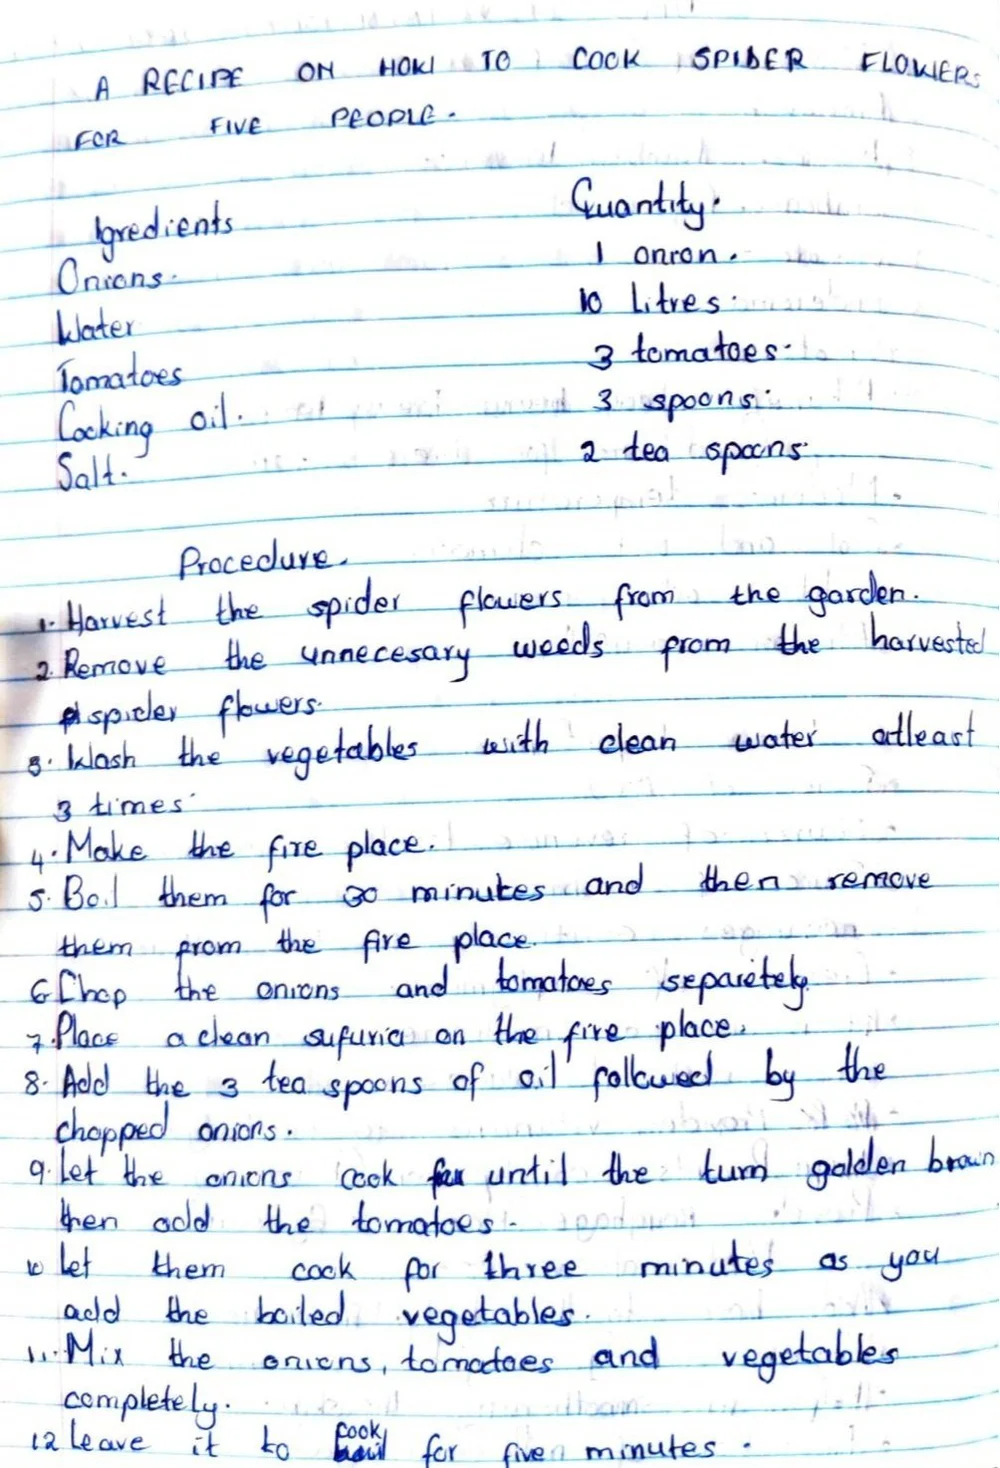 A RECIPE ON HOW TO COOK SPIDER FLOWERS
FOR FIVE PEOPLE.
Igredients Quantity.
Onions. 1 onion.
Water 10 Litres.
Tomatoes 3 tomatoes.
Cooking oil. 3 spoons.
Salt. 2 tea spoons.
Procedure.
1. Harvest the spider flowers from the garden.
2. Remove the unnecesary weeds from the harvested
spider flowers.
3. Wash the vegetables with clean water atleast
3 times.
4. Make the fire place.
5. Boil them for 30 minutes and then remove
them from the fire place.
6 Chop the onions and tomatoes separetely.
7. Place a clean sufuria on the fire place.
8. Add the 3 tea spoons of oil followed by the
chopped onions.
9. Let the onions cook until the turn golden brown
then add the tomatoes.
10 Let them cook for three minutes as you
add the boiled vegetables.
11. Mix the onions, tomatoes and vegetables
completely.
12 Leave it to cook for five minutes.